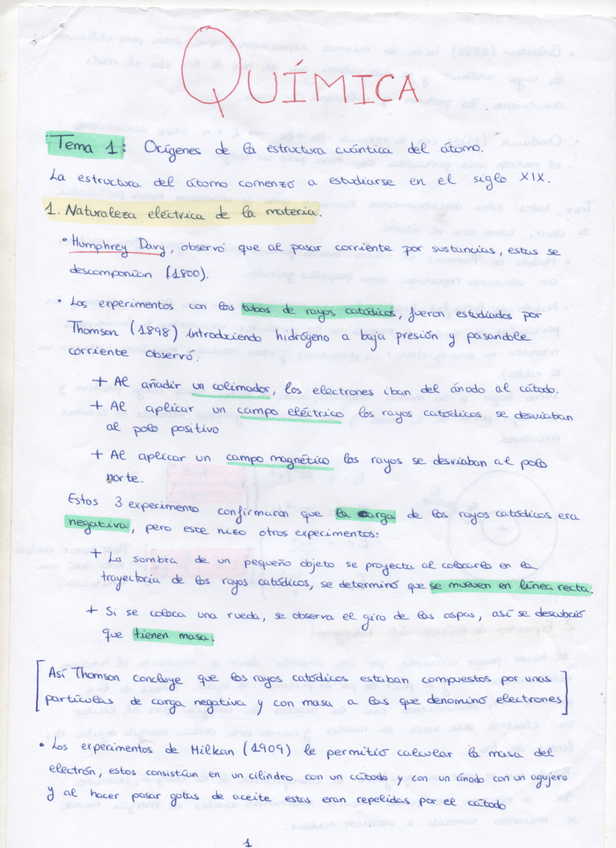 QUÍMICA
Tema 1: Orígenes de la estructura cuántica del átomo.
La estructura del átomo comenzó a estudiarse en el siglo XIX.
1. Naturaleza eléctrica de la materia.
• Humphrey Davy, observó que al pasar corriente por sustancias, estas se
descomponían (1800).
• Los experimentos con los tubos de rayos catódicos, fueron estudiados por
Thomson (1898) introduziendo hidrógeno a baja presión y pasandole
corriente observó:
+ Al añadir un colimador, los electrones iban del ánodo al cátodo.
+ Al aplicar un campo eléctrico los rayos catódicos se desviaban
al polo positivo
+ Al aplicar un campo magnético los rayos se desviaban al polo
norte.
Estos 3 experimento confirmaron que la carga de los rayos catódicos era
negativa, pero este hizo otros experimentos:
+ La sombra de un pequeño objeto se proyecta al colocarlo en la
trayectoria de los rayos catódicos, se determinó que se mueven en línea recta.
+ Si se coloca una rueda, se observa el giro de las aspas, así se descubrió
que tienen masa.
[Así Thomson concluye que los rayos catódicos estaban compuestos por unas
partículas de carga negativa y con masa a las que denominó electrones]
• Los experimentos de Milikan (1909) le permitió calcular la masa del
electrón, estos consistían en un cilindro con un cátodo y con un ánodo con un agujero
y al hacer pasar gotas de aceite estas eran repelidas por el cátodo
1